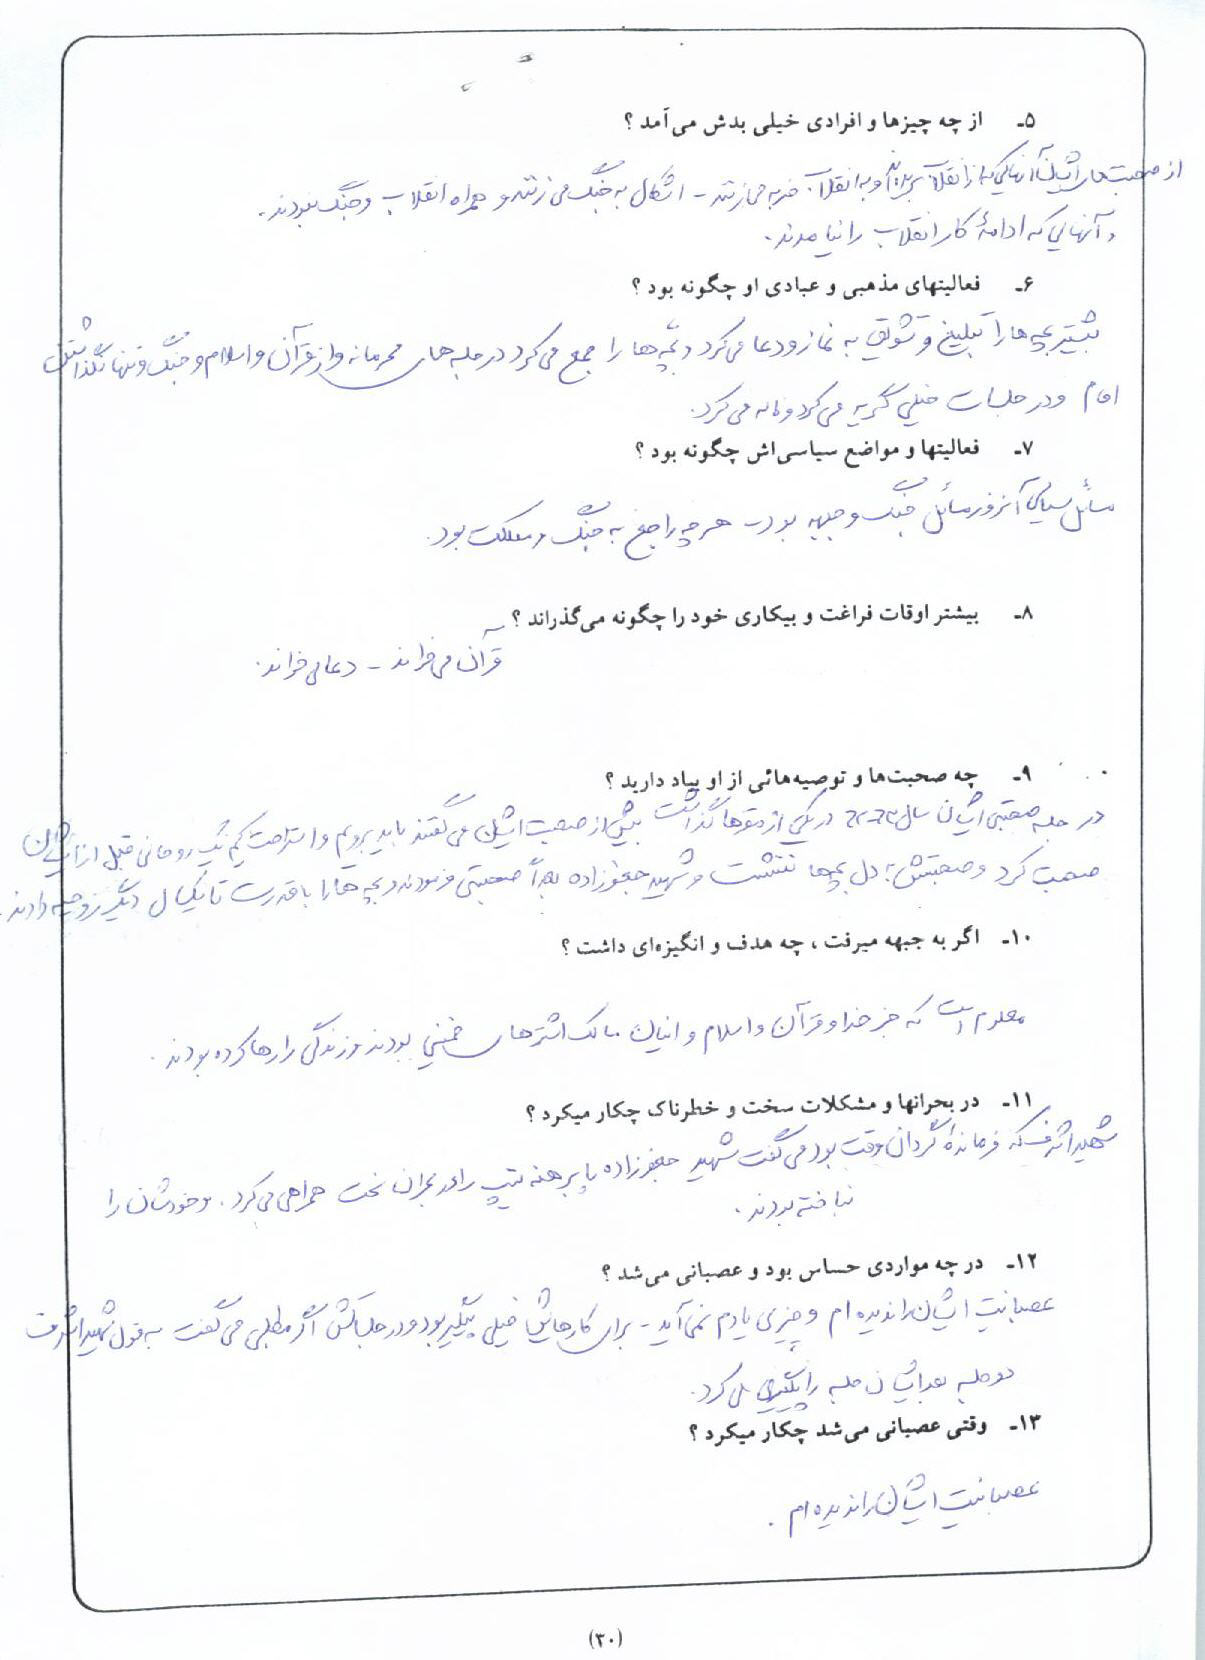 ۵ـ از چه چیزها و افرادی خیلی بدش می‌آمد ؟
از صحبتهای ایشان آنهایی که از انقلاب بریدند و به انقلاب ضربه می‌زنند - اشکال به جنگ می‌زنند و همراه انقلاب و جنگ نبودند.
و آنهایی که ادامهٔ کار انقلاب را نیامدند.
۶ـ فعالیتهای مذهبی و عبادی او چگونه بود ؟
بیشتر بچه‌ها را تبلیغ و تشویق به نماز و دعا می‌کرد و بچه‌ها را جمع می‌کرد در جلسه‌های محرمانه و از قرآن و اسلام و جنگ و تنها نگذاشتن
امام و در جلسات خیلی گریه می‌کرد و ناله می‌کرد.
۷ـ فعالیتها و مواضع سیاسی‌اش چگونه بود ؟
مسائل سیاسی آنروز مسائل جنگ و جبهه بود - هر چه راجع به جنگ و مملکت بود.
۸ـ بیشتر اوقات فراغت و بیکاری خود را چگونه می‌گذراند ؟
قرآن می‌خواند - دعا می‌خواند.
۹ـ چه صحبت‌ها و توصیه‌هائی از او بیاد دارید ؟
در جلسه صحبتی ایشان سال در یکی از مقرها گذاشت بیش از صحبت ایشان می‌گفتند باید برویم و استراحت کنیم یک روحانی قبل از ایشان
صحبت کرد و صحبتش به دل بچه‌ها ننشست و شهید جعفرزاده بعداً صحبتی فرمودند و بچه‌ها را با قدرت تا یکسال دیگر روحیه دادند.
۱۰ـ اگر به جبهه میرفت ، چه هدف و انگیزه‌ای داشت ؟
معلوم است که جز خدا و قرآن و اسلام و اینان مالک اشترهای خمینی بودند و زندگی را رها کرده بودند.
۱۱ـ در بحرانها و مشکلات سخت و خطرناک چکار میکرد ؟
شهید اشرف که فرماندهٔ گردان وقت بود می‌گفت شهید جعفرزاده پا برهنه تیپ را در بحران سخت همراهی می‌کرد. و خودشان را
نباخته بودند.
۱۲ـ در چه مواردی حساس بود و عصبانی می‌شد ؟
عصبانیت ایشان را ندیده‌ام و چیزی یادم نمی‌آید - برای کارهایش خیلی پیگیر بود و در جلساتش اگر مطلبی می‌گفت به قول شهید اشرف
دو جلسه بعد ایشان جلسه را پیگیری می‌کرد.
۱۳ـ وقتی عصبانی می‌شد چکار میکرد ؟
عصبانیت ایشان را ندیده‌ام.
(۳۰)